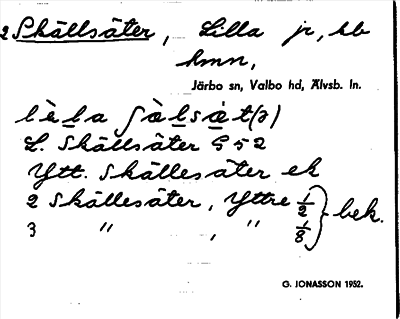 2 Skällsäter, Lilla jr, hb
hmn,
Järbo sn, Valbo hd, Älvsb. ln.
lè̱la ʃàḻsȧ̱t(ə)
L. Skällsäter G52
Ytt. Skällesäter ek
2 Skällesäter, Yttre 1/2 } bek.
3 " , " 1/8
G. JONASSON 1952.